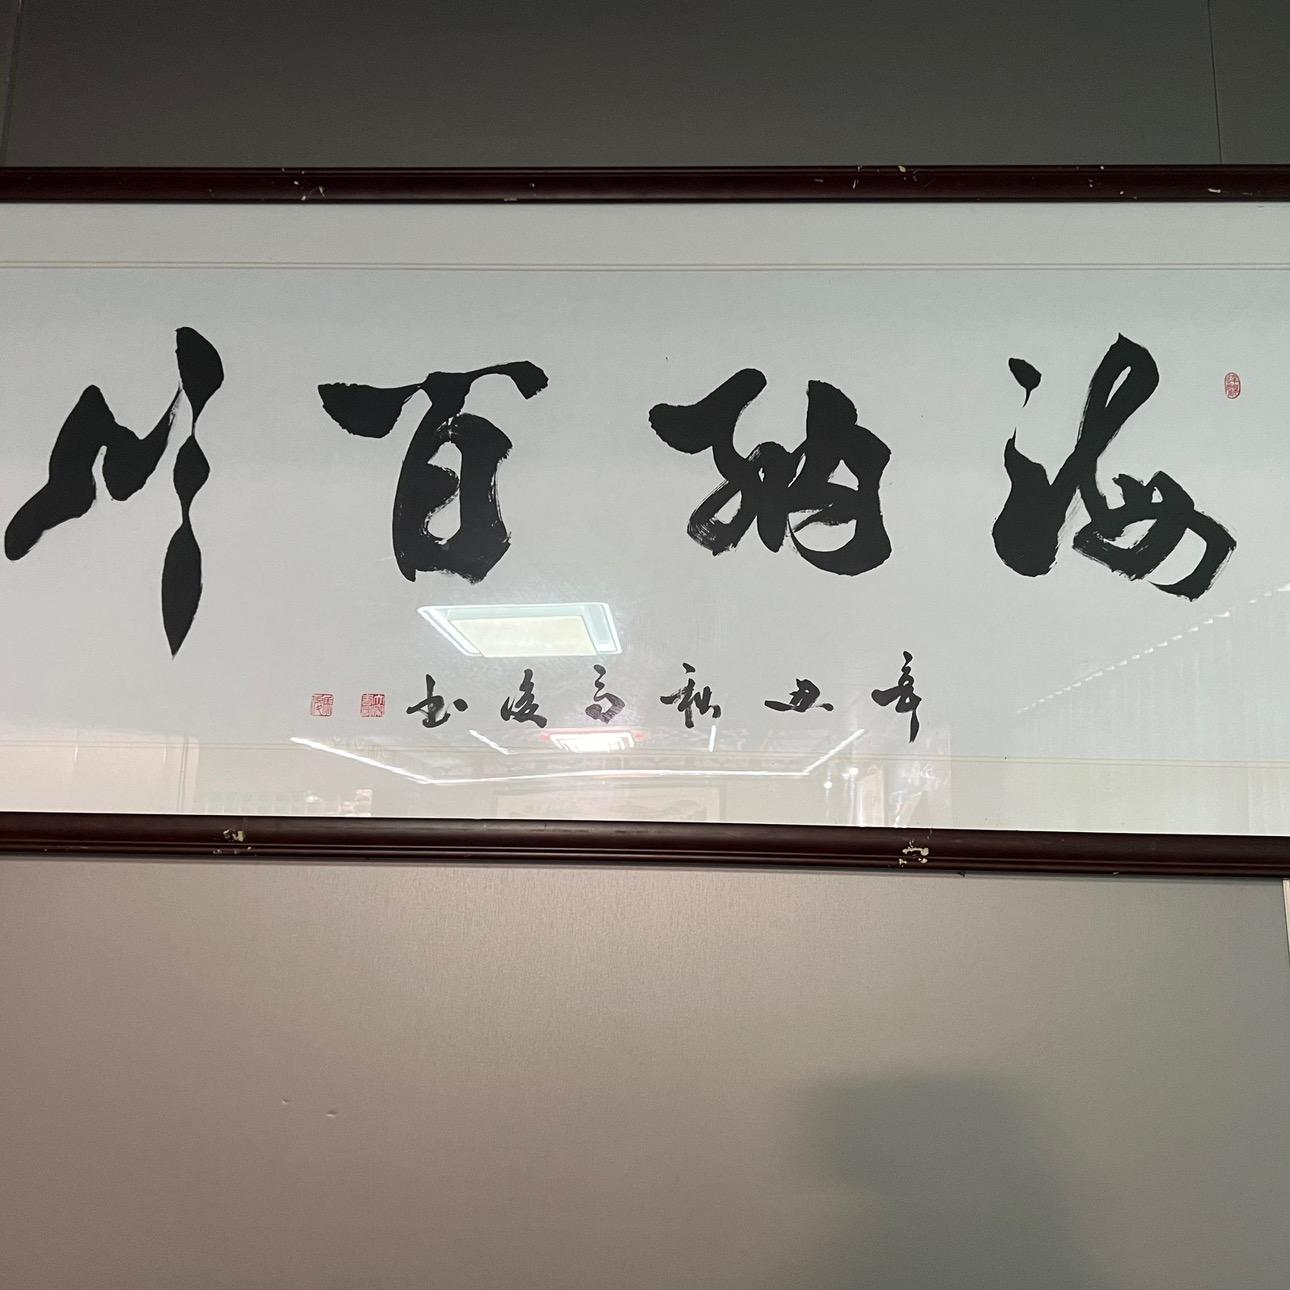 海纳百川
辛丑秋高俊书